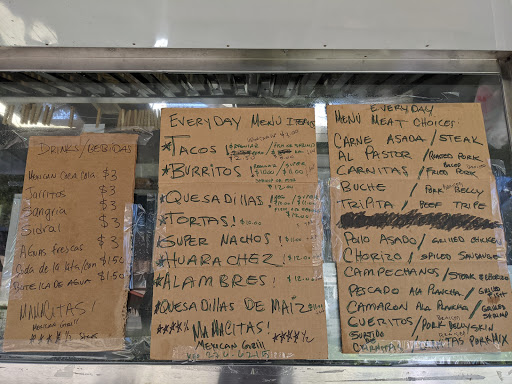 DRINKS/BEBIDAS
Mexican Coca Cola $3
Jarritos $3
Sangria $3
Sidral $3
Aguas frescas $3
Soda de la lata/can $1.50
Botella de agua $1.50
MAMACITAS
Mexican Grill
EVERYDAY MENU ITEMS
*TACOS
*BURRITOS
$12.00
*QUESADILLAS
*TORTAS! $10.00
*SUPER NACHOS!
*HUARACHEZ! $12.00
*ALAMBRES! $12.00
*QUESADILLAS DE MAIZ
****½ MAMACITAS! ****½
MEXICAN GRILL
EVERYDAY
MENU MEAT CHOICES!
CARNE ASADA/STEAK
AL PASTOR/
CARNITAS/FRIED PORK
BUCHE / PORK BELLY
TRIPITA / BEEF TRIPE
POLLO ASADO/GRILLED CHICKEN
CHORIZO/SPICED SAUSAGE
CAMPECHANOS/STEAK & CHORIZO
PESCADO ALA PLANCHA/GRILLED
CAMARON ALA PLANCHA/GRILLED SHRIMP
CUERITOS/PORK BELLY SKIN
SURTIDO